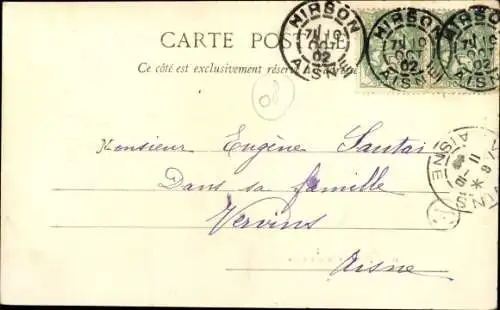 CARTE POST
Ce côté est exclusivement réservé
HIRSON
10
OCT
02
AISNE
HIRSON
10
OCT
02
AISNE
HIRSON
10
02
AISNE
Monsieur Eugène Santai
Dans sa famille
Vervins
Aisne
AISNE
11